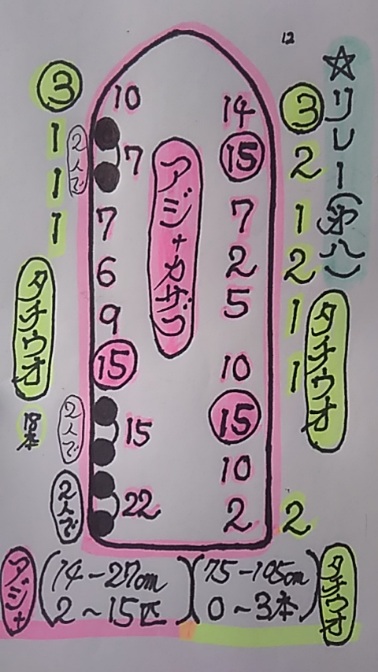 12
☆リレー(第八)
③ 10 14 ③
1 2人で 7 ⑮ 2
1
1 7 7 1
6 2 2
9 5 1
⑮ 10 1
2人で 15 ⑮
10
2人で 22 2 2
アジ+カサゴ
タチウオ
18本
タチウオ
アジ+ (14-27cm
2~15匹)
(75-105cm
0~3本) タチウオ